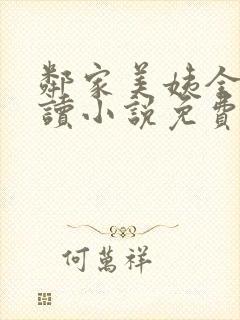 鄰家美姨全
讀小說免費
何萬祥